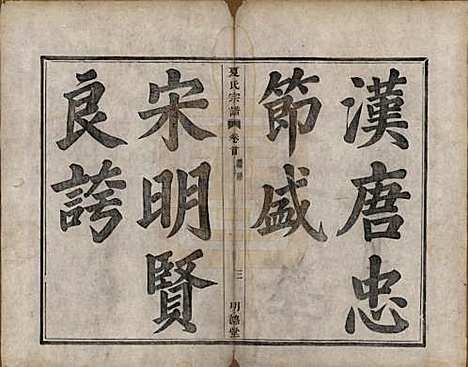 漢唐忠
節盛
夏氏宗譜 卷首
三
明德堂
宋明賢
良誇